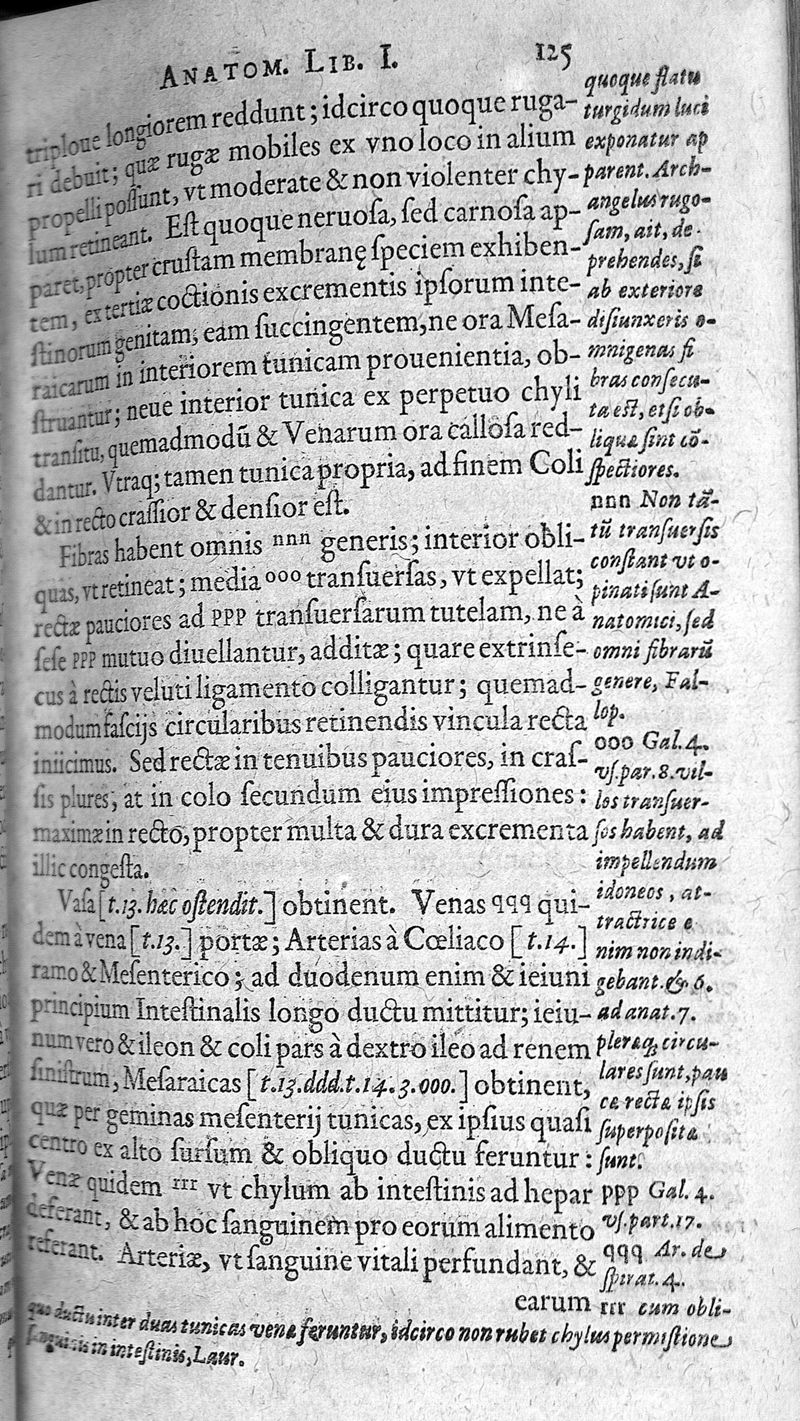 ANATOM. LIB. I. 125
triploue longiorem reddunt; idcirco quoque ruga-
ri debuit; quæ rugæ mobiles ex vno loco in alium
propelli poſſunt, vt moderate & non violenter chy-
lum retineant. Eſt quoque neruoſa, ſed carnoſa ap-
paret, propter cruſtam membranę ſpeciem exhiben-
tem, ex tertiæ coctionis excrementis ipſorum inte-
ſtinorum genitam; eam ſuccingentem, ne ora Meſa-
raicarum in interiorem tunicam prouenientia, ob-
ſtruantur; neue interior tunica ex perpetuo chyli
tranſitu, quemadmodũ & Venarum ora calloſa red-
dantur. Vtraq; tamen tunica propria, ad finem Coli
& in recto craſſior & denſior eſt.
Fibras habent omnis nnn generis; interior obli-
quas, vt retineat; media ooo tranſuerſas, vt expellat;
rectæ pauciores ad PPP tranſuerſarum tutelam, ne à
ſeſe PPP mutuo diuellantur, additæ; quare extrinſe-
cus à rectis veluti ligamento colligantur; quemad-
modum faſcijs circularibus retinendis vincula recta
iniicimus. Sed rectæ in tenuibus pauciores, in craſ-
ſis plures, at in colo ſecundum eius impreſſiones:
maximæ in recto, propter multa & dura excrementa
illic congeſta.
Vaſa [t.13. hæc oſtendit.] obtinent. Venas qqq qui-
dem à vena [t.13.] portæ; Arterias à Cœliaco [t.14.]
ramo & Meſenterico; ad duodenum enim & ieiuni
principium Inteſtinalis longo ductu mittitur; ieiu-
num vero & ileon & coli pars à dextro ileo ad renem
ſiniſtrum, Meſaraicas [t.13.ddd.t.14.3.000.] obtinent,
quæ per geminas meſenterij tunicas, ex ipſius quaſi
centro ex alto ſurſum & obliquo ductu feruntur:
Venæ quidem rrr vt chylum ab inteſtinis ad hepar
deferant, & ab hoc ſanguinem pro eorum alimento
referant. Arteriæ, vt ſanguine vitali perfundant, &
earum
quoque flatu
turgidum luci
exponatur ap
parent. Arch-
angelus rugo-
ſam, ait, de-
prehendes, ſi
ab exteriore
diſiunxeris o-
mnigenas fi
bras conſecu-
ta eſt, etſi ob-
liquæ ſint cõ-
ſpectiores.
nnn Non tã-
tũ tranſuerſis
conſtant vt o-
pinati ſunt A-
natomici, ſed
omni fibrarũ
genere, Fal-
lop.
ooo Gal. 4.
vſ. par. 8. vil-
los tranſuer-
ſos habent, ad
impellendum
idoneos, at-
tractrice e
nim non indi-
gebant. & 6.
ad anat. 7.
pleræq; circu-
lares ſunt, pau
cæ rectæ ipſis
ſuperpoſitæ
ſunt.
ppp Gal. 4.
vſ. part. 17.
qqq Ar. de
ſpirat. 4.
rrr cum obli-
quo ductu inter duas tunicas venæ feruntur, idcirco non rubet chylus permiſtione
ſanguinis in inteſtinis, Laur.